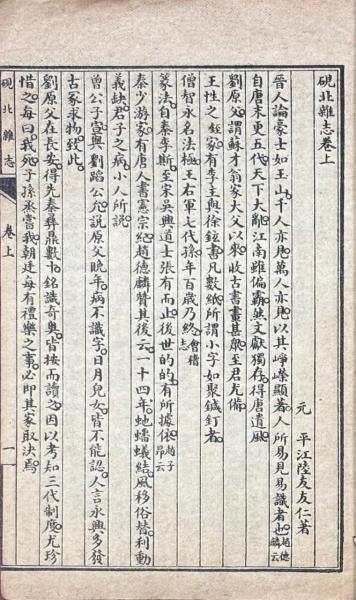 硯北雜志卷上
元 平江陸友友仁著
晉人論豪士如玉山千人亦見萬人亦見以其崢嶸顯著人所易見易識者也趙德麟云
自唐末更五代天下大亂江南雖偏霸然文獻獨存得唐遺風
劉原父謂蘇才翁家大父以來收古書畫甚衆至君尤備
王性之銍家有李主與徐鉉書凡數紙所謂小字如聚鍼釘者
僧智永名法極王右軍七代孫年百歲乃終會稽志
篆法自秦李斯至宋吳興道士張有而止後世的的有所據依趙子昂云
秦少游家有唐人書憲宗紀趙德麟贊其後云一十四年虵蟠蟻結風移俗替利動
義缺君子之病小人所說
曾公子宣與劉蹈公允說原父晚年病不識字日月兒女皆不能認人言永興多發
古冢求物致此
劉原父在長安得先秦彝鼎數十銘識奇奧皆按而讀之因以考知三代制度尤珍
惜之每曰我死子孫烝嘗我朝廷每有禮樂之事必即其家取決焉
硯北雜志 卷上 一